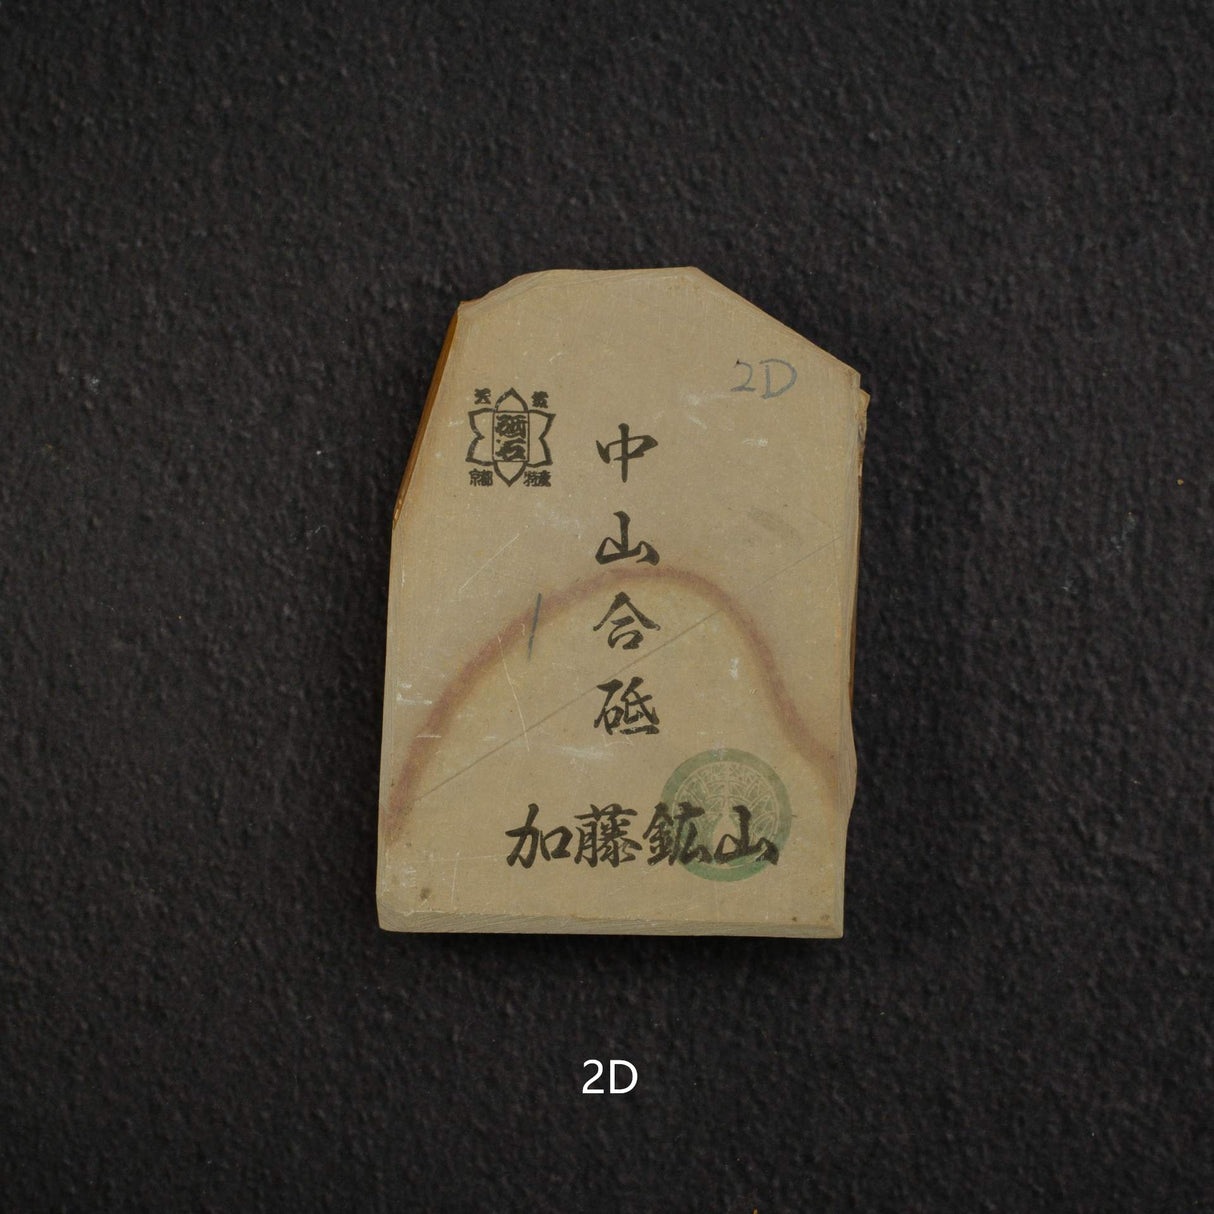 2D
天然
砥石
京都 特産
中山合砥
加藤鉱山
2D